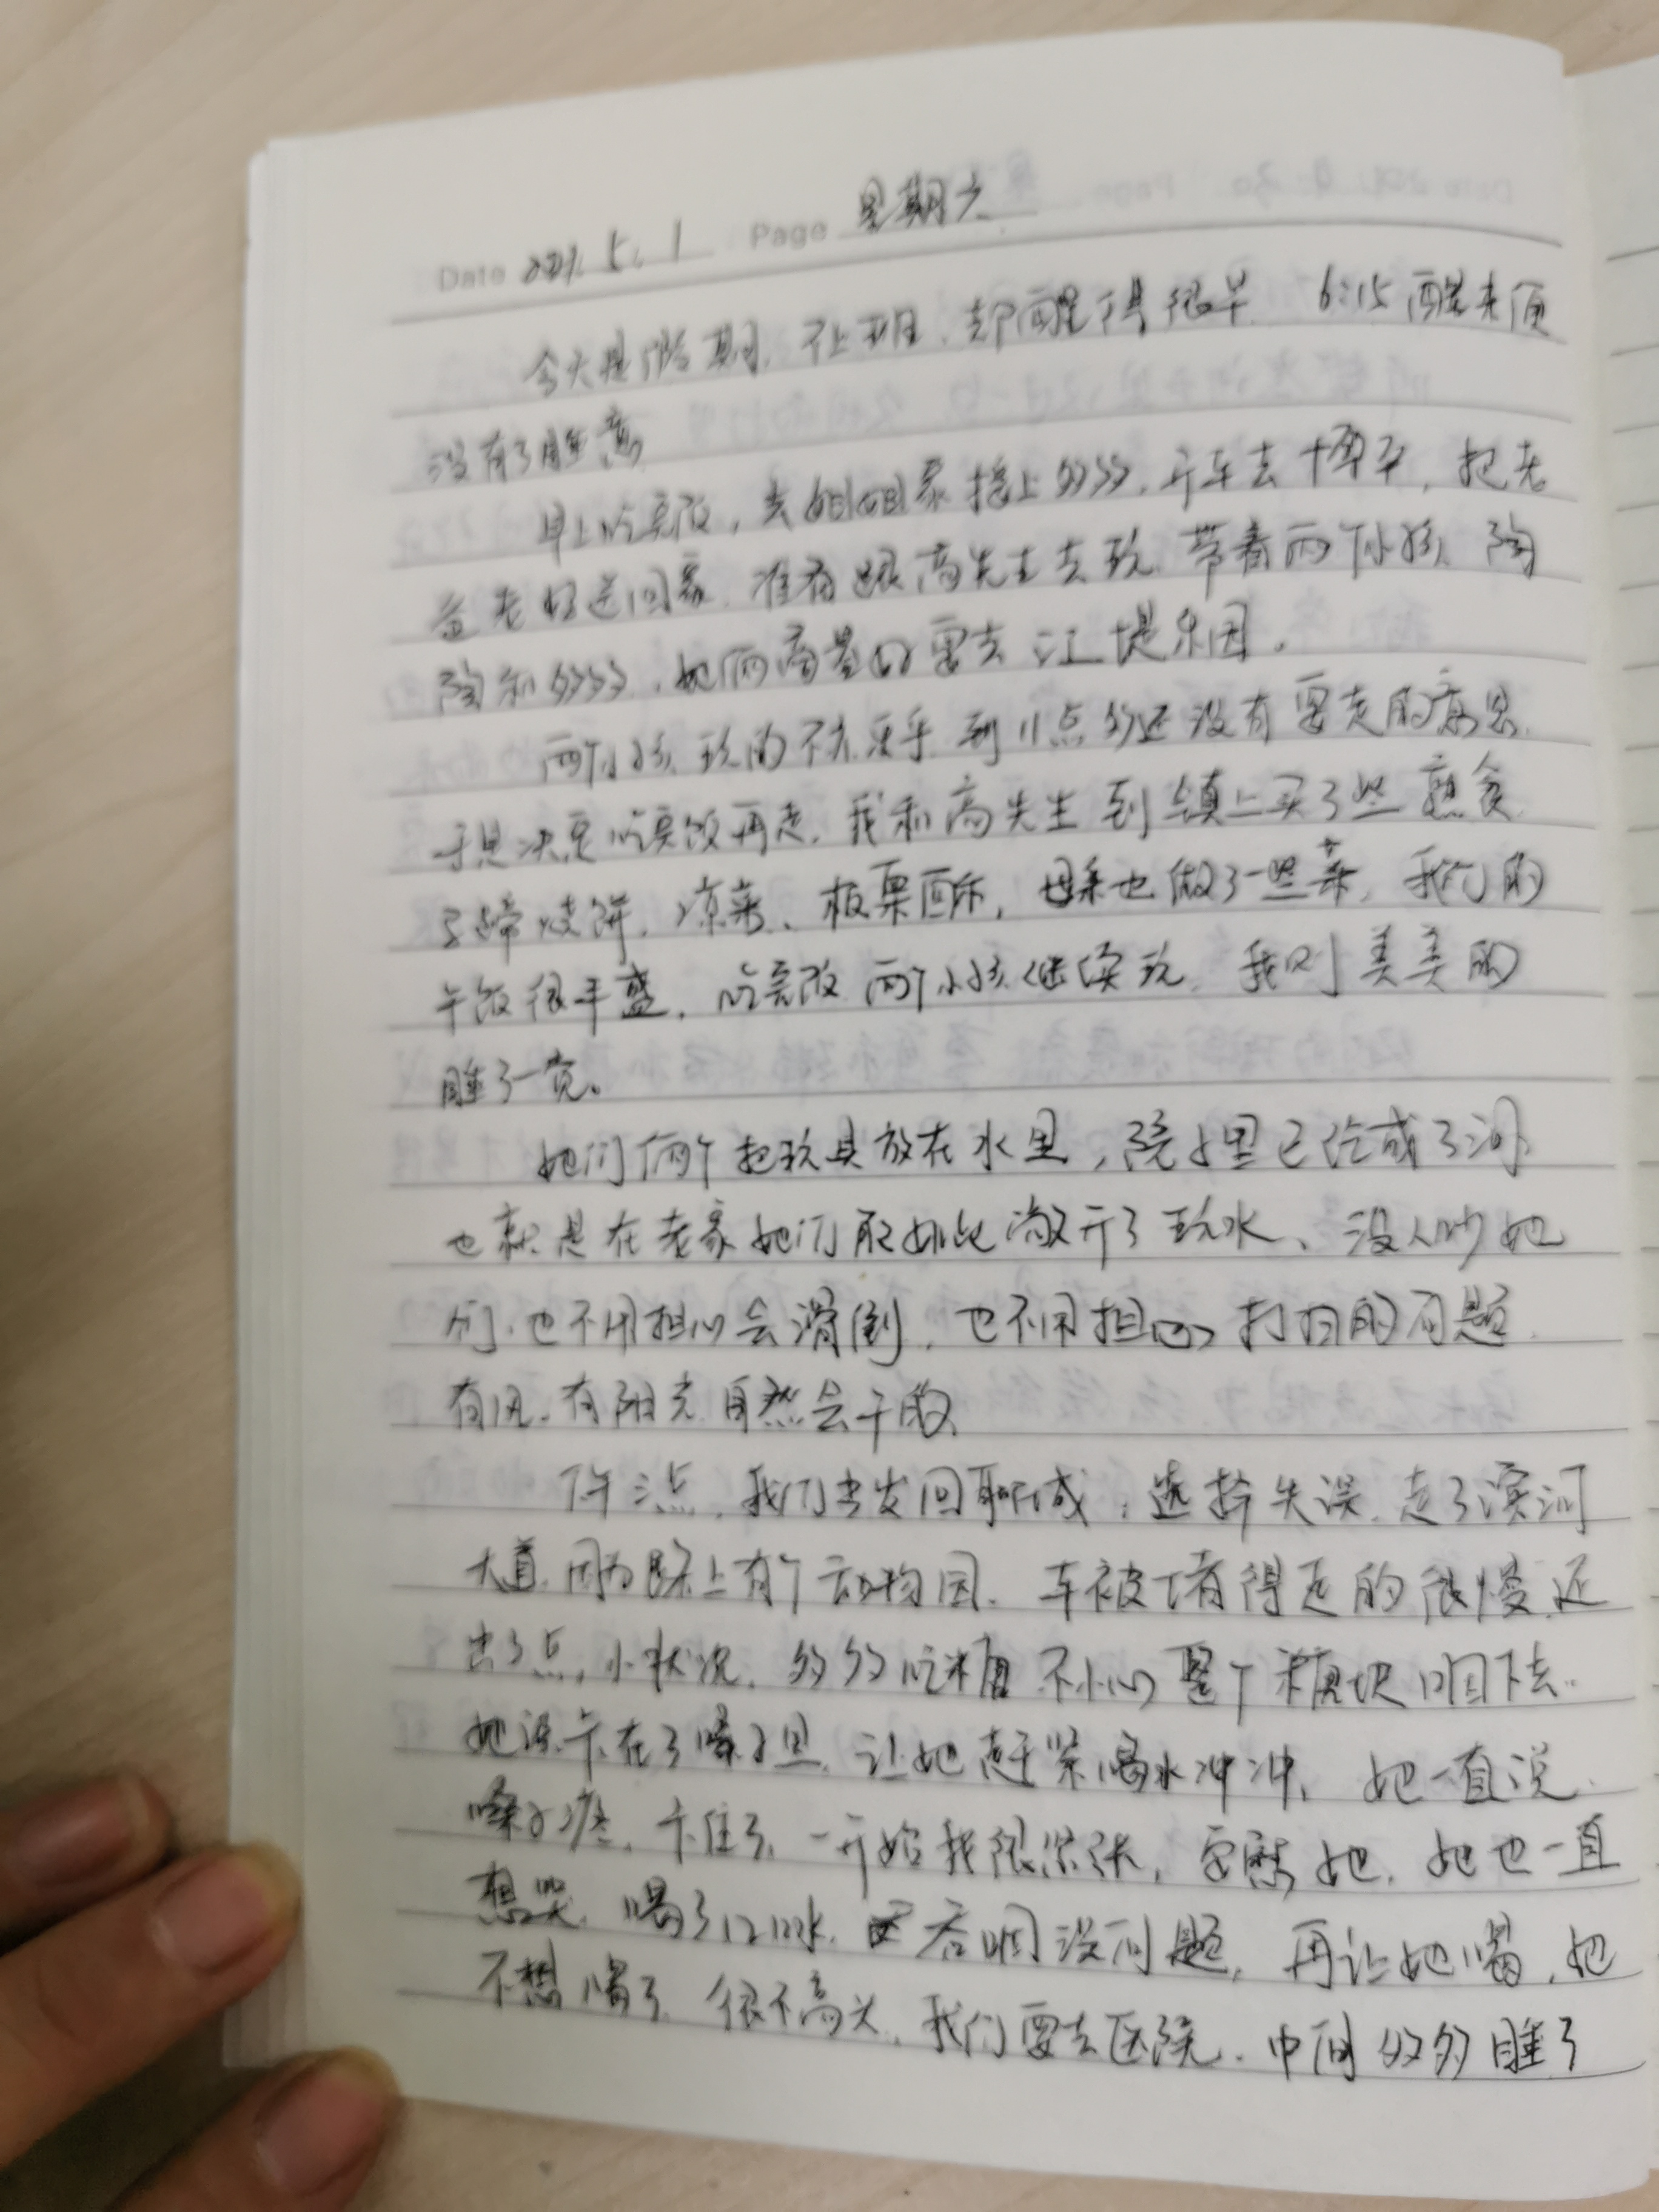 Date 2021. 5. 1 Page 星期六
今天是假期，不上班，却醒得很早 6:15醒来便
没有了睡意
早上吃完饭，去姐姐家接上多多，开车去博平，把老
爸老妈送回家，准备跟高先生去玩，带着两个小孩 陶
陶和多多，她俩商量好要去江堤乐园。
两个小孩玩的不亦乐乎，到11点多还没有要走的意思，
于是决定吃完饭再走，我和高先生到镇上买了些熟食
烧饼，凉菜、板栗酥，母亲也做了一些菜，我们的
午饭很丰盛，吃完饭两个小孩继续玩，我则美美的
睡了一觉。
她们俩个把玩具放在水里，院子里已经成了河，
也就是在老家她们敢如此敞开了玩水、没人吵她
们，也不用担心会滑倒，也不用担心打扫的问题，
有风、有阳光自然会干的，
下午三点，我们出发回聊城，选择失误，走了滨河
大道，因为路上有个动物园，车被堵得走的很慢，还
出了点小状况，多多吃糖不小心整个糖块咽下去，
她说卡在了嗓子里，让她赶紧喝水冲冲，她一直说
嗓子疼，卡住了，一开始我很紧张，安慰她，她也一直
想哭，喝了几口水，吞咽没问题，再让她喝，她
不想喝了，很不高兴，我们要去医院，中间多多睡了